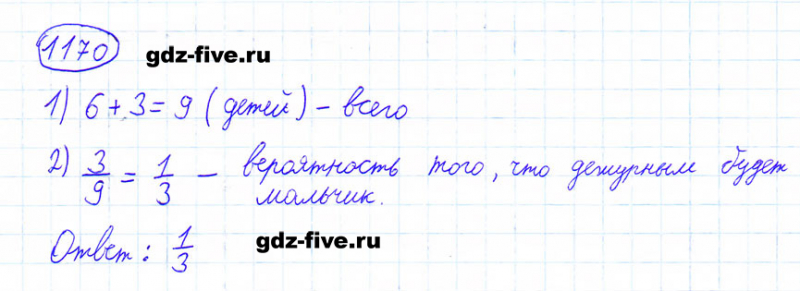 1170 gdz-five.ru
1) 6 + 3 = 9 (детей) – всего
2) 3/9 = 1/3 – вероятность того, что дежурным будет
мальчик.
Ответ: 1/3 gdz-five.ru